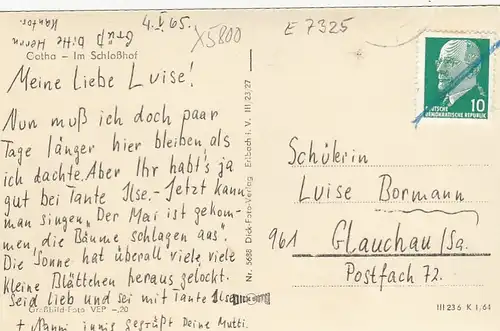 Grüß bitte Herrn
Kantor.
4. V. 65.
X5800
E 7325
Gotha – Im Schloßhof
Meine Liebe Luise!
Nun muß ich doch paar
Tage länger hier bleiben als
ich dachte. Aber Ihr habt's ja
gut bei Tante Ilse. – Jetzt kann
man singen „Der Mai ist gekom-
men, die Bäume schlagen aus".
Die Sonne hat überall viele, viele
kleine Blättchen heraus gelockt.
Seid lieb und sei mit Tante Ilse
+ Nanni innig gegrüßt Deine Mutti.
Großbild-Foto VEP -,20
Nr. 5688 Dick-Foto-Verlag Erlbach i. V. III 23/27
10
DEUTSCHE
DEMOKRATISCHE REPUBLIK
Schülerin
Luise Bormann
961 Glauchau/Sa.
Postfach 72.
III 23 6 K 1/64